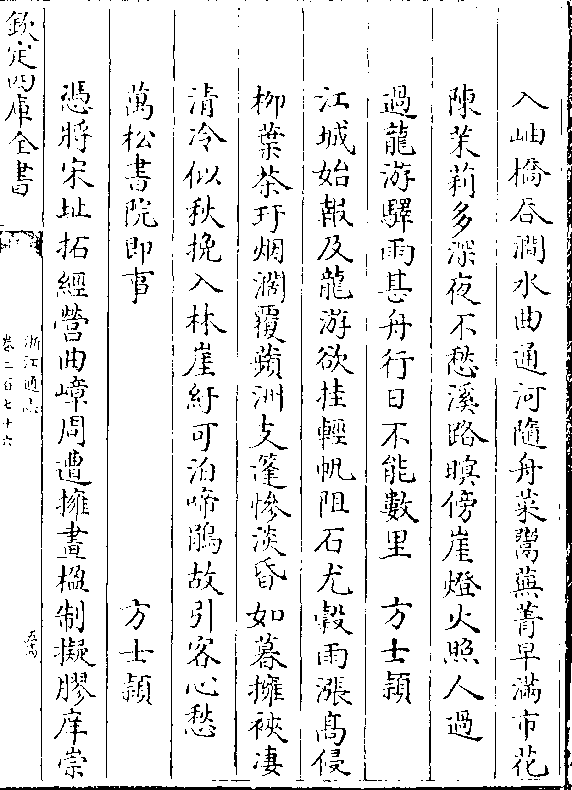 入岫橋吞澗水曲通河隨舟菜鬻蕪菁早滿市花
陳茉莉多深夜不愁溪路暝傍崖燈火照人過
過龍游驛雨甚舟行日不能數里　方士穎
江城始報及龍游欲挂輕帆阻石尤穀雨漲髙侵
柳葉茶圩烟濶覆蘋洲支篷慘淡昏如暮擁裌凄
清冷似秋挽入林崖紆可泊啼鵑故引客心愁
萬松書院即事　方士穎
憑將宋址拓經營曲嶂周遭擁畫楹制擬膠庠崇
欽定四庫全書
浙江通志
卷二百七十六